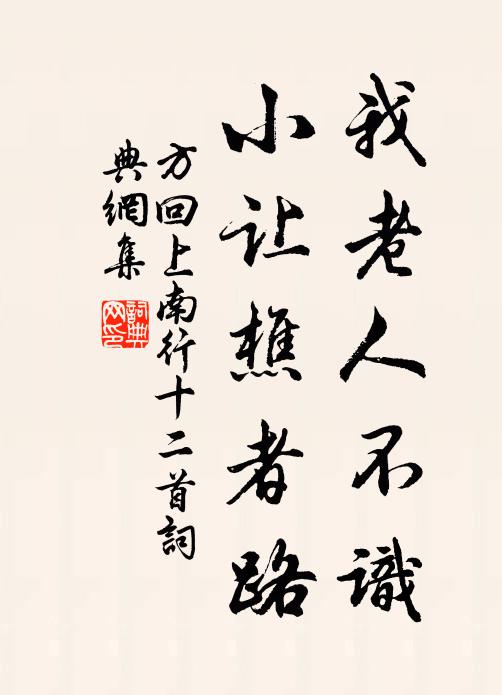 我老人不識
小让樵者路
方回上南行十二首詞
典網集
詞典
网印